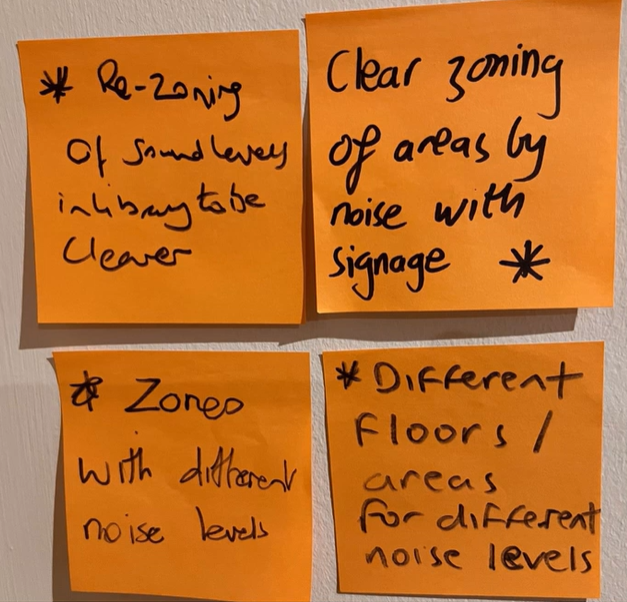 * Re-Zoning
Of Sound levels
in library to be
Clearer
Clear zoning
of areas by
noise with
signage *
* Zones
with different
noise levels
* Different
Floors /
areas
for different
noise levels